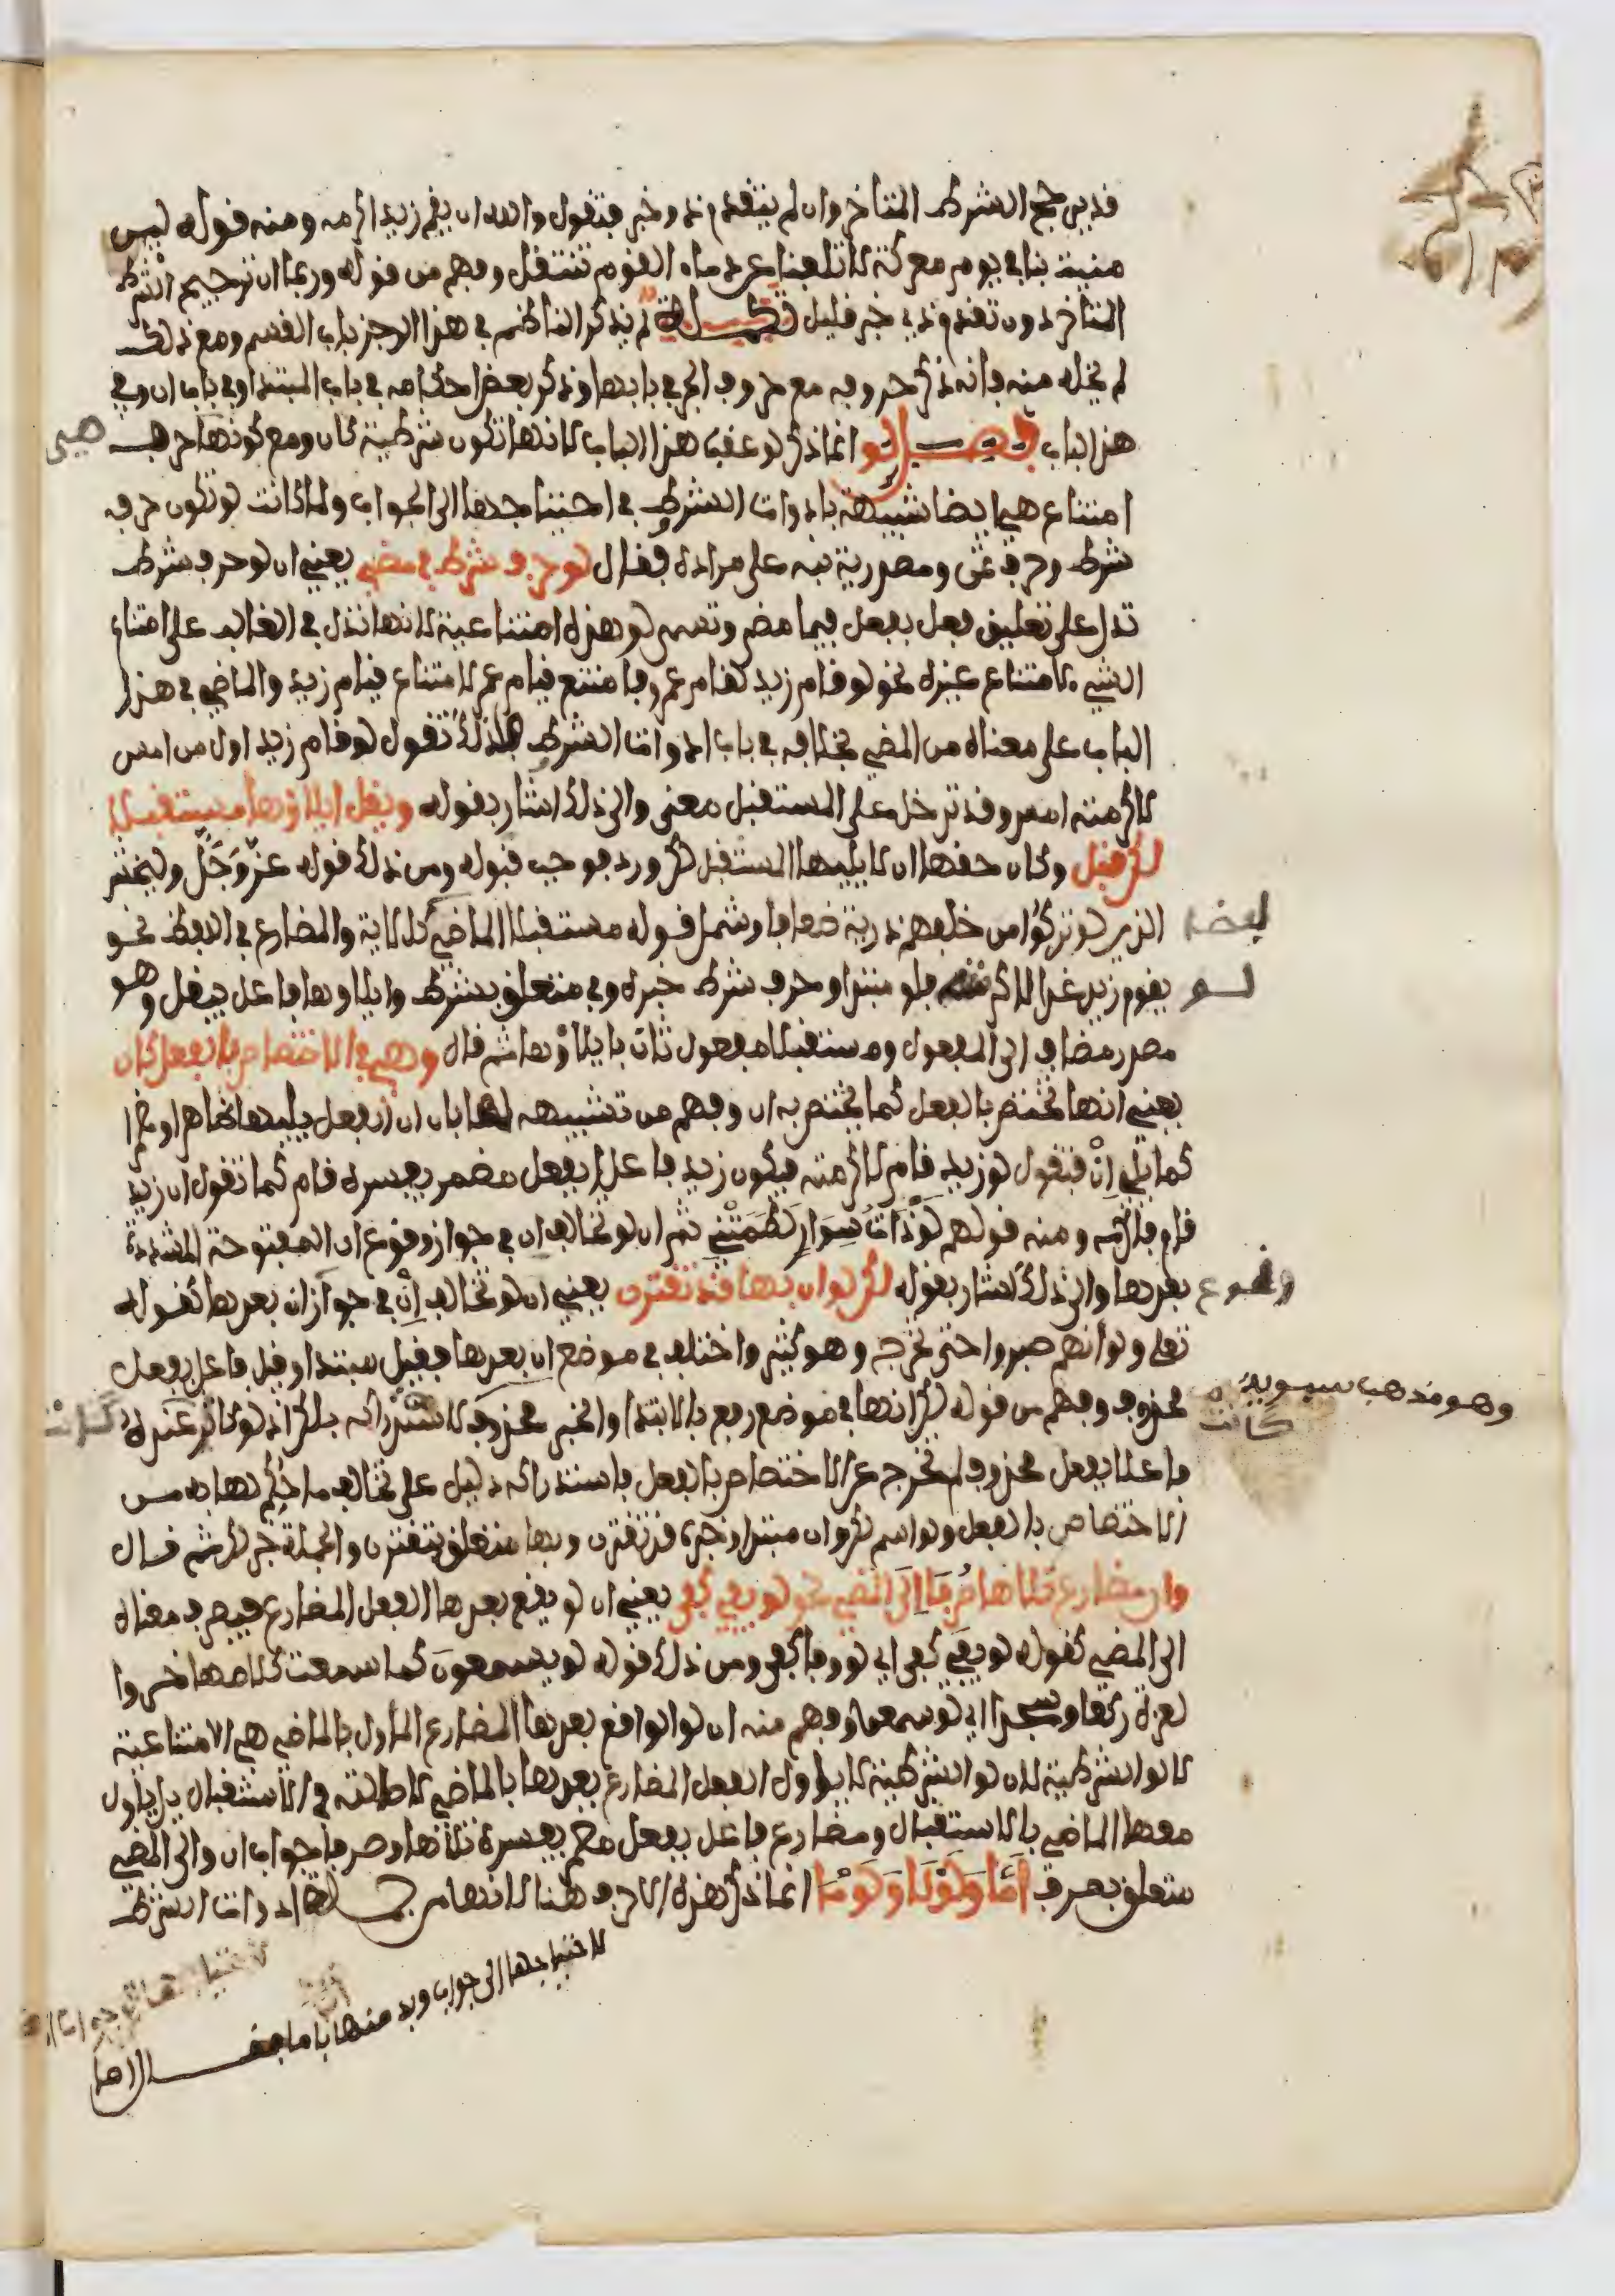 قد يرجح الشرط المتاخر وان لم يتقدم ذو خبر فتقول والله ان يقم زيد اكرمه ومنه قوله ليس
منيت بنا في يوم معركة لا تلفنا عن دماء القوم ننتفل وفهم من قوله وربما ان ترجيح الشرط
المتاخر دون تقدم ذي خبر قليل تكملة لم يذكر الناظم في هذا الرجز باب القسم ومع ذلك
لم يخله منه فانه ذكر حروفه مع حروف الجر في بابها وذكر بعض احكامه في باب المبتدا وفي باب ان وفي
هذا الباب فصل لو انما ذكر لو عقب هذا الباب لانها تكون شرطية كان ومع كونها حرف
هي
امتناع هي ايضا شبيهة بادوات الشرط في احتياجها الى الجواب ولما كانت لو تكون حرف
شرط وحرف تمن ومصدرية نبه على مراده فقال لو حرف شرط في مضي يعني ان لو حرف شرط
تدل على تعليق فعل بفعل فيما مضى وتسمى لو هذه امتناعية لانها تدل في الغالب على امتناع
الشيء لامتناع غيره نحو لو قام زيد لقام عمرو فامتنع قيام عمر لامتناع قيام زيد والماضي في هذا
الباب على معناه من المضي بخلافه في باب ادوات الشرط فلذلك تقول لو قام زيد اول من امس
لاكرمته امس وقد تدخل على المستقبل معنى والى ذلك اشار بقوله ويقل ايلاؤها مستقبلا
لكن قبل وكان حقها ان لا يليها المستقبل لكن ورد فوجب قبوله ومن ذلك قوله عز وجل وليخش
الذين لو تركوا من خلفهم ذرية ضعافا وشمل قوله مستقبلا الماضي كالاية والمضارع في اللفظ نحو
لفضا
لو
يقوم زيد غدا لاكرمته فلو مبتدا وحرف شرط خبره وفي متعلق بشرط وايلاوها فاعل بيقل وهو
مصدر مضاف الى المفعول ومستقبلا مفعول ثان بايلاؤها ثم قال وهي في الاختصاص بالفعل كان
يعني انها تختص بالفعل كما يختص به ان وفهم من تشبيهه لها بان ان الفعل يليها ظاهرا ومضمرا
كما يلي ان فتقول لو زيد قام لاكرمته فيكون زيد فاعلا بفعل مضمر يفسره قام كما تقول ان زيد
قام فاكرمه ومنه قولهم لو ذات سوار لطمتني ثم ان لو تخالف ان في جواز وقوع ان المفتوحة المشددة
بعدها والى ذلك اشار بقوله لكن لو ان بها قد تقترن يعني ان لو تخالف ان في جواز ان بعدها كقوله
وقوع
تعلى ولو انهم صبروا حتى تخرج وهو كثير واختلف في موضع ان بعدها فقيل مبتدا وقيل فاعل بفعل
محذوف وفهم من قوله لكن انها في موضع رفع بالابتداء والخبر محذوف لاستدراكه بلكن اذ لو كان عنده
وهو مذهب سيبويه
كانت
فاعلا بفعل محذوف لم تخرج عن الاختصاص بالفعل فاستدراكه دليل على تخالف ما حكم لها به من
الاختصاص بالفعل ولو اسم لكن وان مبتدا وخبره قد تقترن وبها متعلق بتقترن والجملة خبر لكن ثم قال
وان مضارع تلاها صرفا الى المضي نحو لو يفي كفى يعني ان لو يقع بعدها الفعل المضارع فيصرف معناه
الى المضي كقوله لو يفي كفى اي لو وفا كفى ومن ذلك قوله لو يسمعون كما سمعت كلامها خروا
لعزة ركعا وسجدا اي لو سمعوا وفهم منه ان لو الواقع بعدها المضارع الماول بالماضي هي الامتناعية
لا لو الشرطية لان لو الشرطية لا يؤول الفعل المضارع بعدها بالماضي لاصالته في الاستقبال بل ياول
معها الماضي بالاستقبال ومضارع فاعل بفعل مضمر يفسره تلاها وصرفا جواب ان والى المضي
متعلق بصرف اما ولولا ولوما انما ذكر هذه الاحرف هنا لانها من جملة ادوات الشرط
لاحتياجها الى جواب وبدا منها باما فقال اما